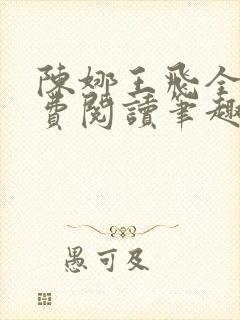 陳娜王飛全
費閱讀筆趣
愚可及